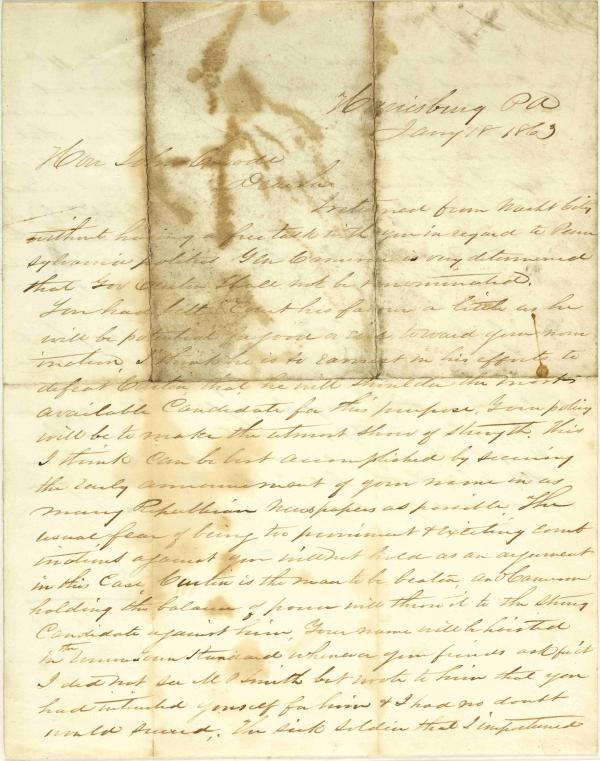 Harrisburg PA
Jany 18 1863
Hon John Covode
Dear Sir
I returned from Washt City
without having a free talk with you in regard to Penn
sylvania politics Gen Cameron is very determined
that Gov Curtin shall not be renominated.
You had better Court his favor a little as he
will be potential a good aid toward your nom
ination I think he is so earnest in his efforts to
defeat Curtin that he will shoulder the most
available Candidate for this purpose, Your policy
will be to make the utmost show of strength. this
I think can be best accomplished by securing
the early announcement of your name in as
many Republican Newspapers as possible. The
usual fear of being too prominent & exciting comb
inations against you will not hold as an argument
in this Case Curtin is the man to be beaten, and Cameron
holding the balance of power will throw it to the strong
Candidate against him, Your name will be hoisted
in the Union Town Standard whenever your friends ask for it
I did not see Mr Smith but wrote to him that you
had interested yourself for him & I had no doubt
would succeed. The sick soldier that I importuned